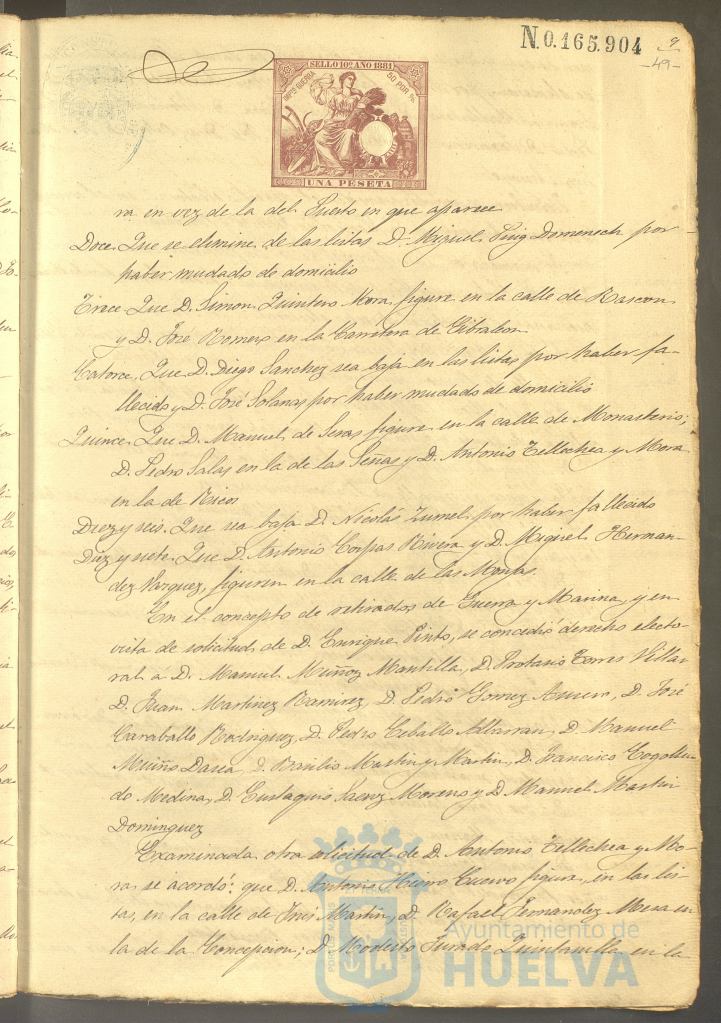 N.0.165.904
9
-49-
SELLO 10º AÑO 1881
IMPTO GUERRA 50 POR %
UNA PESETA
ra en vez de la del Puerto en que aparece
Doce. Que se elimine de las listas D. Miguel Puig Domenech por
haber mudado de domicilio
Trece Que D. Simon Quintero Mora figure en la calle de Rascon
y D. José Romero en la Carretera de Gibraleon
Catorce. Que D. Diego Sanchez sea baja en las listas por haber fa-
llecido y D. José Solanas por haber mudado de domicilio
Quince. Que D. Manuel de Seras figure en la calle de Monasterio;
D. Pedro Salas en la de las Señas y D. Antonio Tellechea y Mora
en la de Ricos
Diez y seis. Que sea baja D. Nicolás Zumel por haber fallecido
Diez y siete. Que D. Antonio Corpas Rivera y D. Miguel Hernan-
dez Vazquez, figuren en la calle de las Monjas.
En el concepto de retirados de Guerra y Marina, y en
vista de solicitud de D. Enrique Pinto, se concedió derecho electo-
ral á D. Manuel Muñoz Mantilla, D. Protasio Torres Villar
D. Juan Martinez Ramirez, D. Pedro Gomez D. José
Caraballo Rodriguez, D. Pedro Ceballo Albarran, D. Manuel
Muiño D. Basilio Martin y Martin, D. Francisco Cogollu-
do Medina, D. Eustaquio Saenz Moreno y D. Manuel Martin
Dominguez
Examinada otra solicitud de D. Antonio Tellechea y Mo-
ra se acordó: que D. Antonio Cuervo figure, en las lis-
tas, en la calle de José Martin, D. Rafael Fernandez Mesa en
la de la Concepcion; D. Modesto Jurado Quintanilla en la
Ayuntamiento de
HUELVA